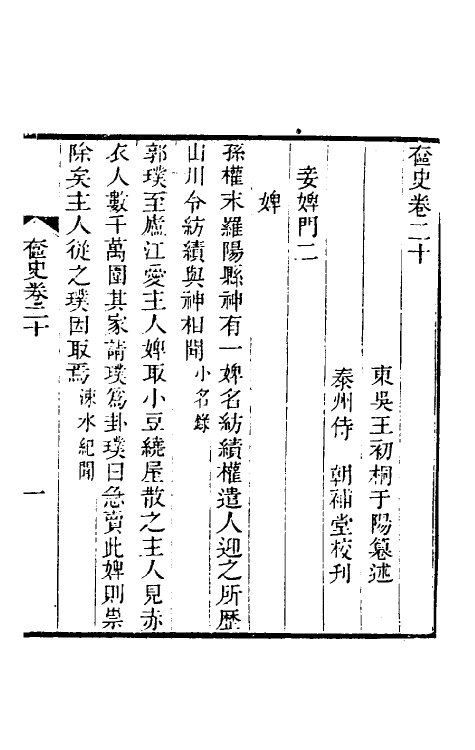 奩史卷二十
東吳王初桐于陽纂述
泰州侍　朝補堂校刊
妾婢門二
婢
孫權末羅陽縣神有一婢名紡績權遣人迎之所歴
山川令紡績與神相聞小名錄
郭璞至廬江愛主人婢取小豆繞屋散之主人見赤
衣人數千萬圍其家請璞爲卦璞曰急賣此婢則祟
除矣主人從之璞因取焉涑水紀聞
奩史卷二十
一